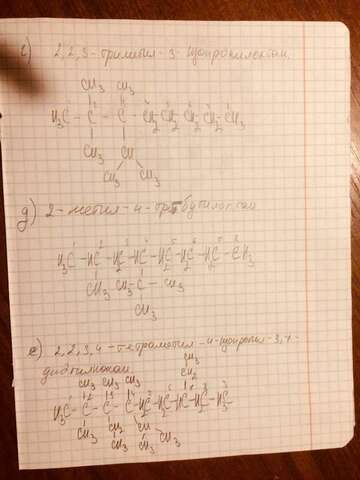 с) 2,2,3-триметил-3-изопропилоктан
CH₃ CH₃
H₃C - C - C - CH₂ CH₂ CH₂ CH₂ CH₃
CH₃ CH
CH₃ CH₃
д) 2-метил-4-третбутилоктан
H₃C - HC - H₂C - HC - H₂C - H₂C - H₂C - CH₃
CH₃ CH₃ - C - CH₃
CH₃
е) 2,2,3,4-тетраметил-4-изопропил-3,7-
CH₃
CH₂
CH₃ CH₃ CH₃
H₃C - C - C - C
CH₃ CH₂ CH
CH₃ CH₃ CH₃